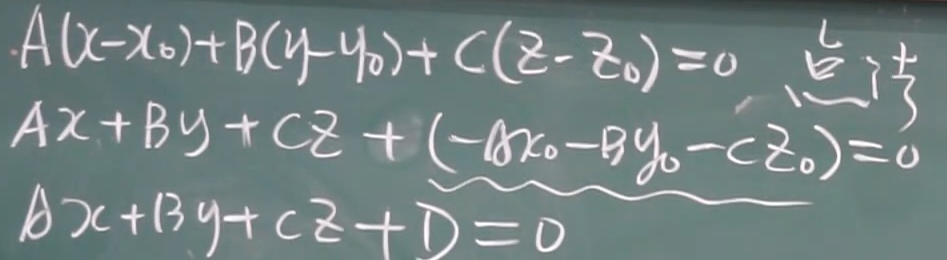 A(x-x₀)+B(y-y₀)+C(z-z₀)=0 点法
Ax+By+Cz+(-Ax₀-By₀-Cz₀)=0
Ax+By+Cz+D=0